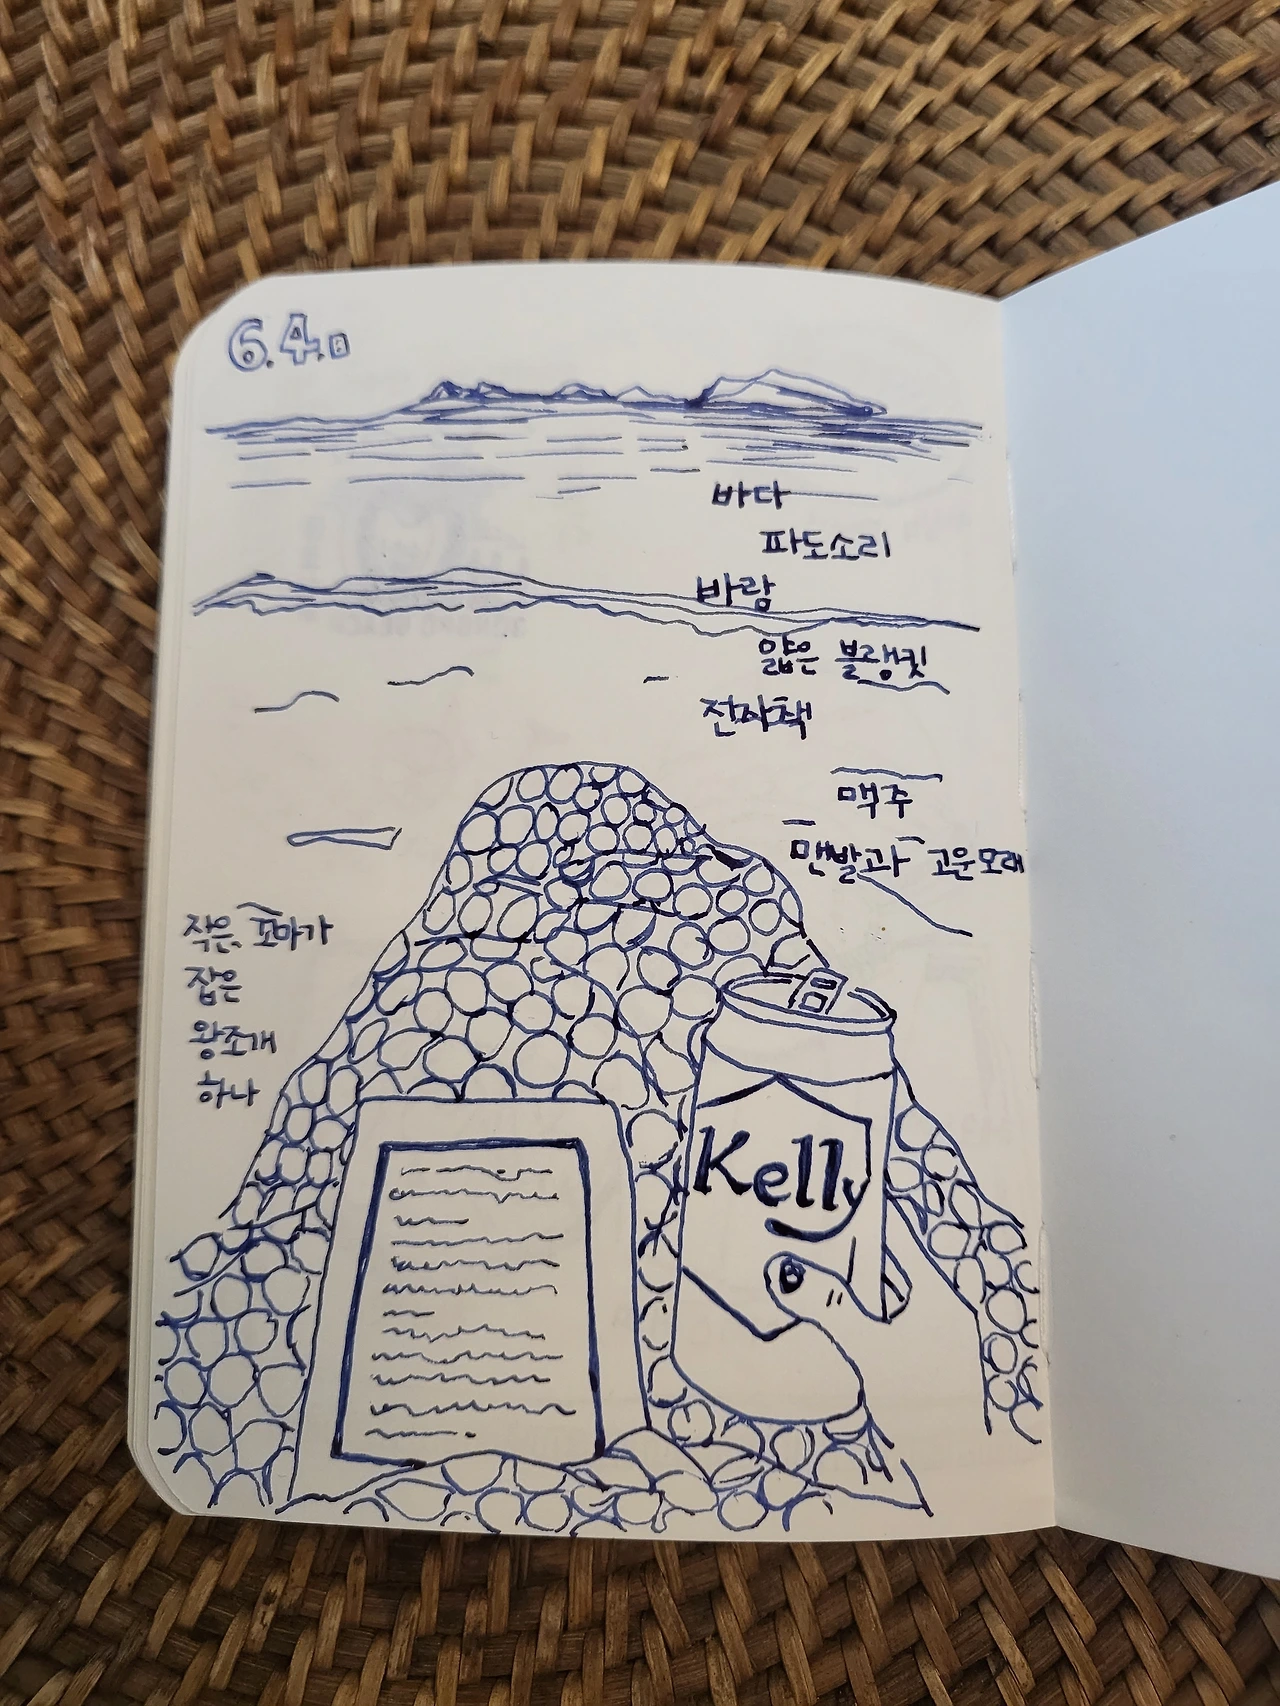 6.4.日
바다
파도소리
바람
얇은 블랭킷
전자책
맥주
맨발과 고운모래
작은 꼬마가
잡은
왕조개
하나
Kelly